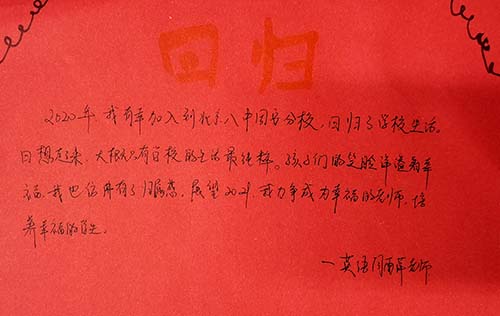 回归
2020年，我有幸加入到北京八中固安分校，回归了学校生活。
回想起来，大概只有学校的生活最纯粹。孩子们的笑脸洋溢着幸
福，我也倍有了归属感。展望2021，我力争成为幸福的老师，培
养幸福的学生。
—英语 老师